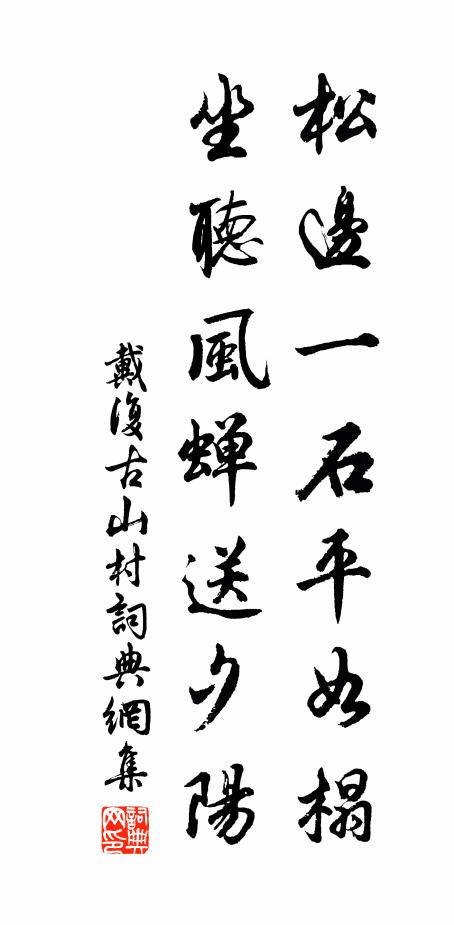 松邊一石平如榻
坐聽風蟬送夕陽
戴復古山村詞典網集
詞典网印